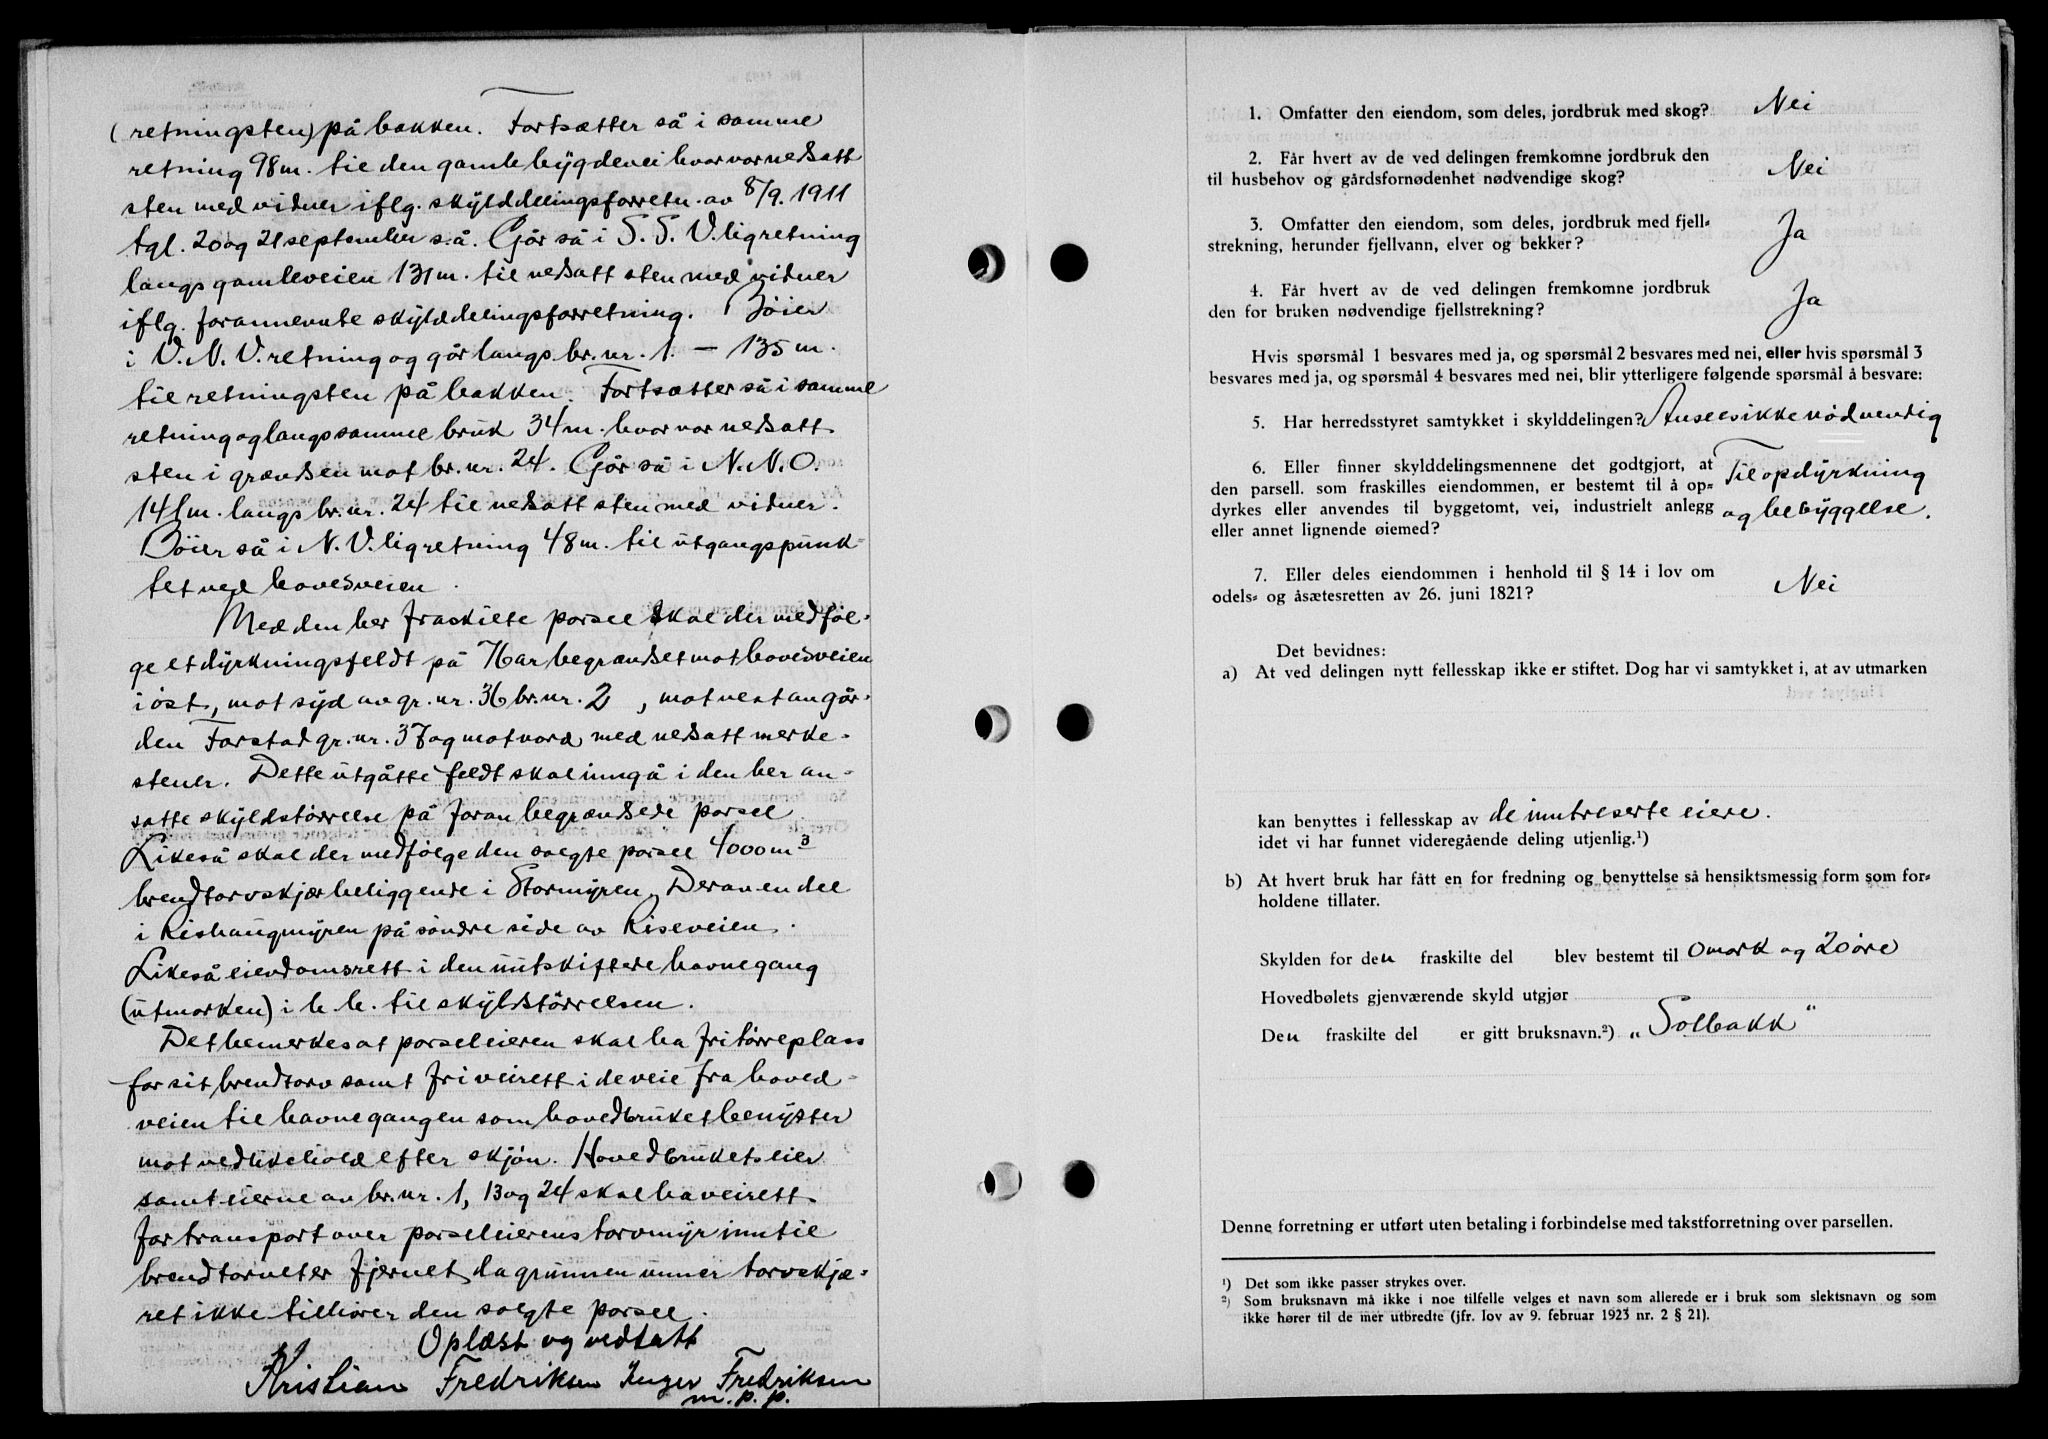 (retningsten) på bakken. Fortsætter så i samme
retning 98m. til den gamle bygdevei hvor var nedsatt
sten med vidner iflg. skylddelingsforretn. av 8/9. 1911
tgl. 20 og 21 september s.å. Går så i S. S. V. lig retning
langs gamleveien 131m. til nedsatt sten med vidner
iflg. forannevnte skylddelingsforretning. Böier
i V. N. V. retning og går langs br. nr. 1. – 135 m.
til retningsten på bakken. Fortsætter så i samme
retning og langs samme bruk 34m. hvor var nedsatt
sten i grændsen mot br. nr. 24. Går så i N. N. O.
141m. langs br. nr. 24 til nedsatt sten med vidner.
Böier så i N. V. lig retning 48m. til utgangspunk-
tet ved hovedveien.
Med den her fraskilte parsel skal der medföl-
ge et dyrkningsfeldt på 76 ar begrændset mot hovedveien
i öst, mot syd av gr. nr. 36 br. nr. 2, mot vest av går-
den Farstad gr. nr. 37 og mot nord med nedsatt merke-
stener. Dette utgåtte feldt skal inngå i den her an-
satte skyldstörrelse på foran begrændsede parsel.
Likeså skal der medfölge den solgte parsel 4000 m³
brendtorvskjær beliggende i Stormyren. Derav en del
i Rishaugmyren på söndre side av Riseveien.
Likeså eiendomsrett i den uutskiftede havnegang
(utmarken) i h. h. til skyldstörrelsen.
Det bemerkes at parseleieren skal ha fri törreplass
for sit brendtorv samt fri veirett i de veie fra hoved-
veien til havnegangen som hovedbruket benytter
mot vedlikehold efter skjön. Hovedbrukets eier
samt eierne av br. nr. 1, 13 og 24 skal ha veirett
for transport over parseleierens torvmyr inntil
brendtorvet er fjernet, da grunnen unner torvskjæ-
ret ikke tilhörer den solgte parsel.
Oplæst og vedtatt
Kristian Fredriksen Inger Fredriksen
m. p. p.
1. Omfatter den eiendom, som deles, jordbruk med skog? Nei
2. Får hvert av de ved delingen fremkomne jordbruk den
til husbehov og gårdsfornødenhet nødvendige skog? Nei
3. Omfatter den eiendom, som deles, jordbruk med fjell-
strekning, herunder fjellvann, elver og bekker? Ja
4. Får hvert av de ved delingen fremkomne jordbruk
den for bruken nødvendige fjellstrekning? Ja
Hvis spørsmål 1 besvares med ja, og spørsmål 2 besvares med nei, eller hvis spørsmål 3
besvares med ja, og spørsmål 4 besvares med nei, blir ytterligere følgende spørsmål å besvare:
5. Har herredsstyret samtykket i skylddelingen? Ansees ikke nödvendig
6. Eller finner skylddelingsmennene det godtgjort, at
den parsell. som fraskilles eiendommen, er bestemt til å op-
dyrkes eller anvendes til byggetomt, vei, industrielt anlegg
eller annet lignende øiemed? Til opdyrkning
og bebyggelse.
7. Eller deles eiendommen i henhold til § 14 i lov om
odels- og åsætesretten av 26. juni 1821? Nei
Det bevidnes:
a) At ved delingen nytt fellesskap ikke er stiftet. Dog har vi samtykket i, at av utmarken
kan benyttes i fellesskap av de inntreserte eiere.
idet vi har funnet videregående deling utjenlig.¹)
b) At hvert bruk har fått en for fredning og benyttelse så hensiktsmessig form som for-
holdene tillater.
Skylden for den fraskilte del blev bestemt til 0 mark og 20 öre
Hovedbølets gjenværende skyld utgjør
Den fraskilte del er gitt bruksnavn.²) „Solbakk"
Denne forretning er utført uten betaling i forbindelse med takstforretning over parsellen.
¹) Det som ikke passer strykes over.
²) Som bruksnavn må ikke i noe tilfelle velges et navn som allerede er i bruk som slektsnavn og som
ikke hører til de mer utbredte (jfr. lov av 9. februar 1923 nr. 2 § 21).